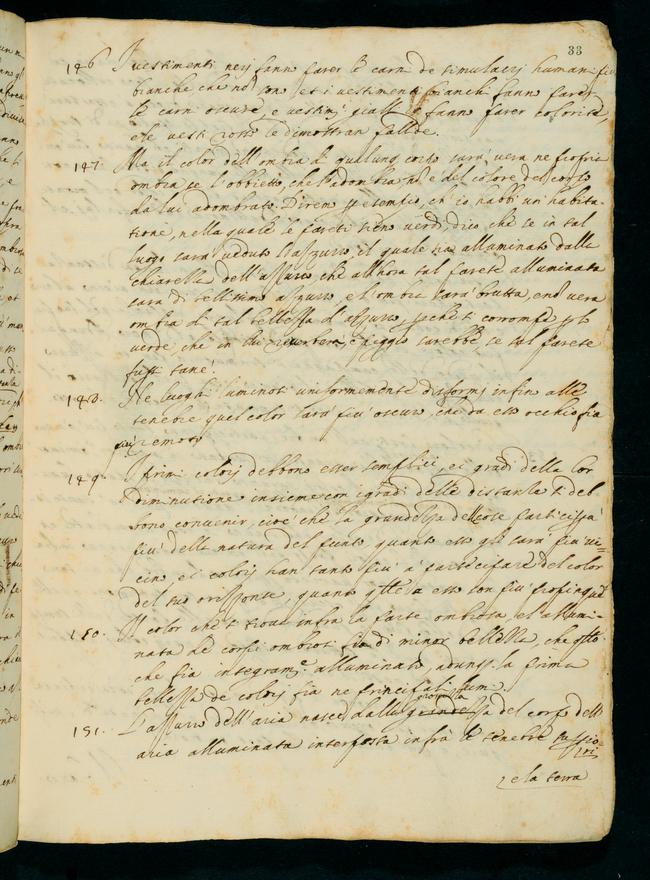 33
146 I vestimenti neri fann parer le carni de simulacri humani più
bianche che nō son, et i vestimenti bianchi fann parer
le carni oscure, e vestimti gialli le fanno parer colorite,
e le vesti rosse le dimostran pallide.
147. Ma il color dell'ombra di qualunq corpo sara' vera ne propria
ombra, se l'obbietto, che l'adombra nō è del colore del corpo
da lui adombrato. Direm p esempio, ch'io habbi un habita-
tione, nella quale le parete sieno verdi, dico che se in tal
luogo sara' veduto l'azzurro, il quale sia alluminato dalla
chiarezza dell'azzurro, che allhora tal parete alluminata
sara' di bellissimo azzurro, e l'ombra sara' brutta, e nō vera
ombra di tal bellezza d'azzurro, pche si corrompe pl
verde, che in lui riverbera, e peggio sarebbe, se tal parete
fussi tane'.
148. Ne luoghi luminosi uniformemente difformi infin alle
tenebre quel color sara' piu' oscuro, che da esso occhio fia
piu' remoto
149. I primi colorj debbono esser semplici, ei gradi della lor
diminutione insieme con i gradi delle distanze si deb
bono convenir, cioè che la grandezza delle cose participera'
piu' della natura del punto quanto esso gli sara' piu' vi=
cino, ei colorj han tanto piu' a partecipare del color
del suo orizzonte, quanto qlle a esso son piu' propinque
150. Il color che si trova infra la parte ombrosa, e l'allumi-
nata de corpi ombrosi fia di minor bellezza, che qllo
che fia integramte. alluminato, adunq. la prima
bellezza de colorj fia ne principali lumi.
151. L'azzurro dell'aria nasce dalla grossezza del corpo dell'
aria alluminata interposta infra le tenebre superio-
ri
e la terra